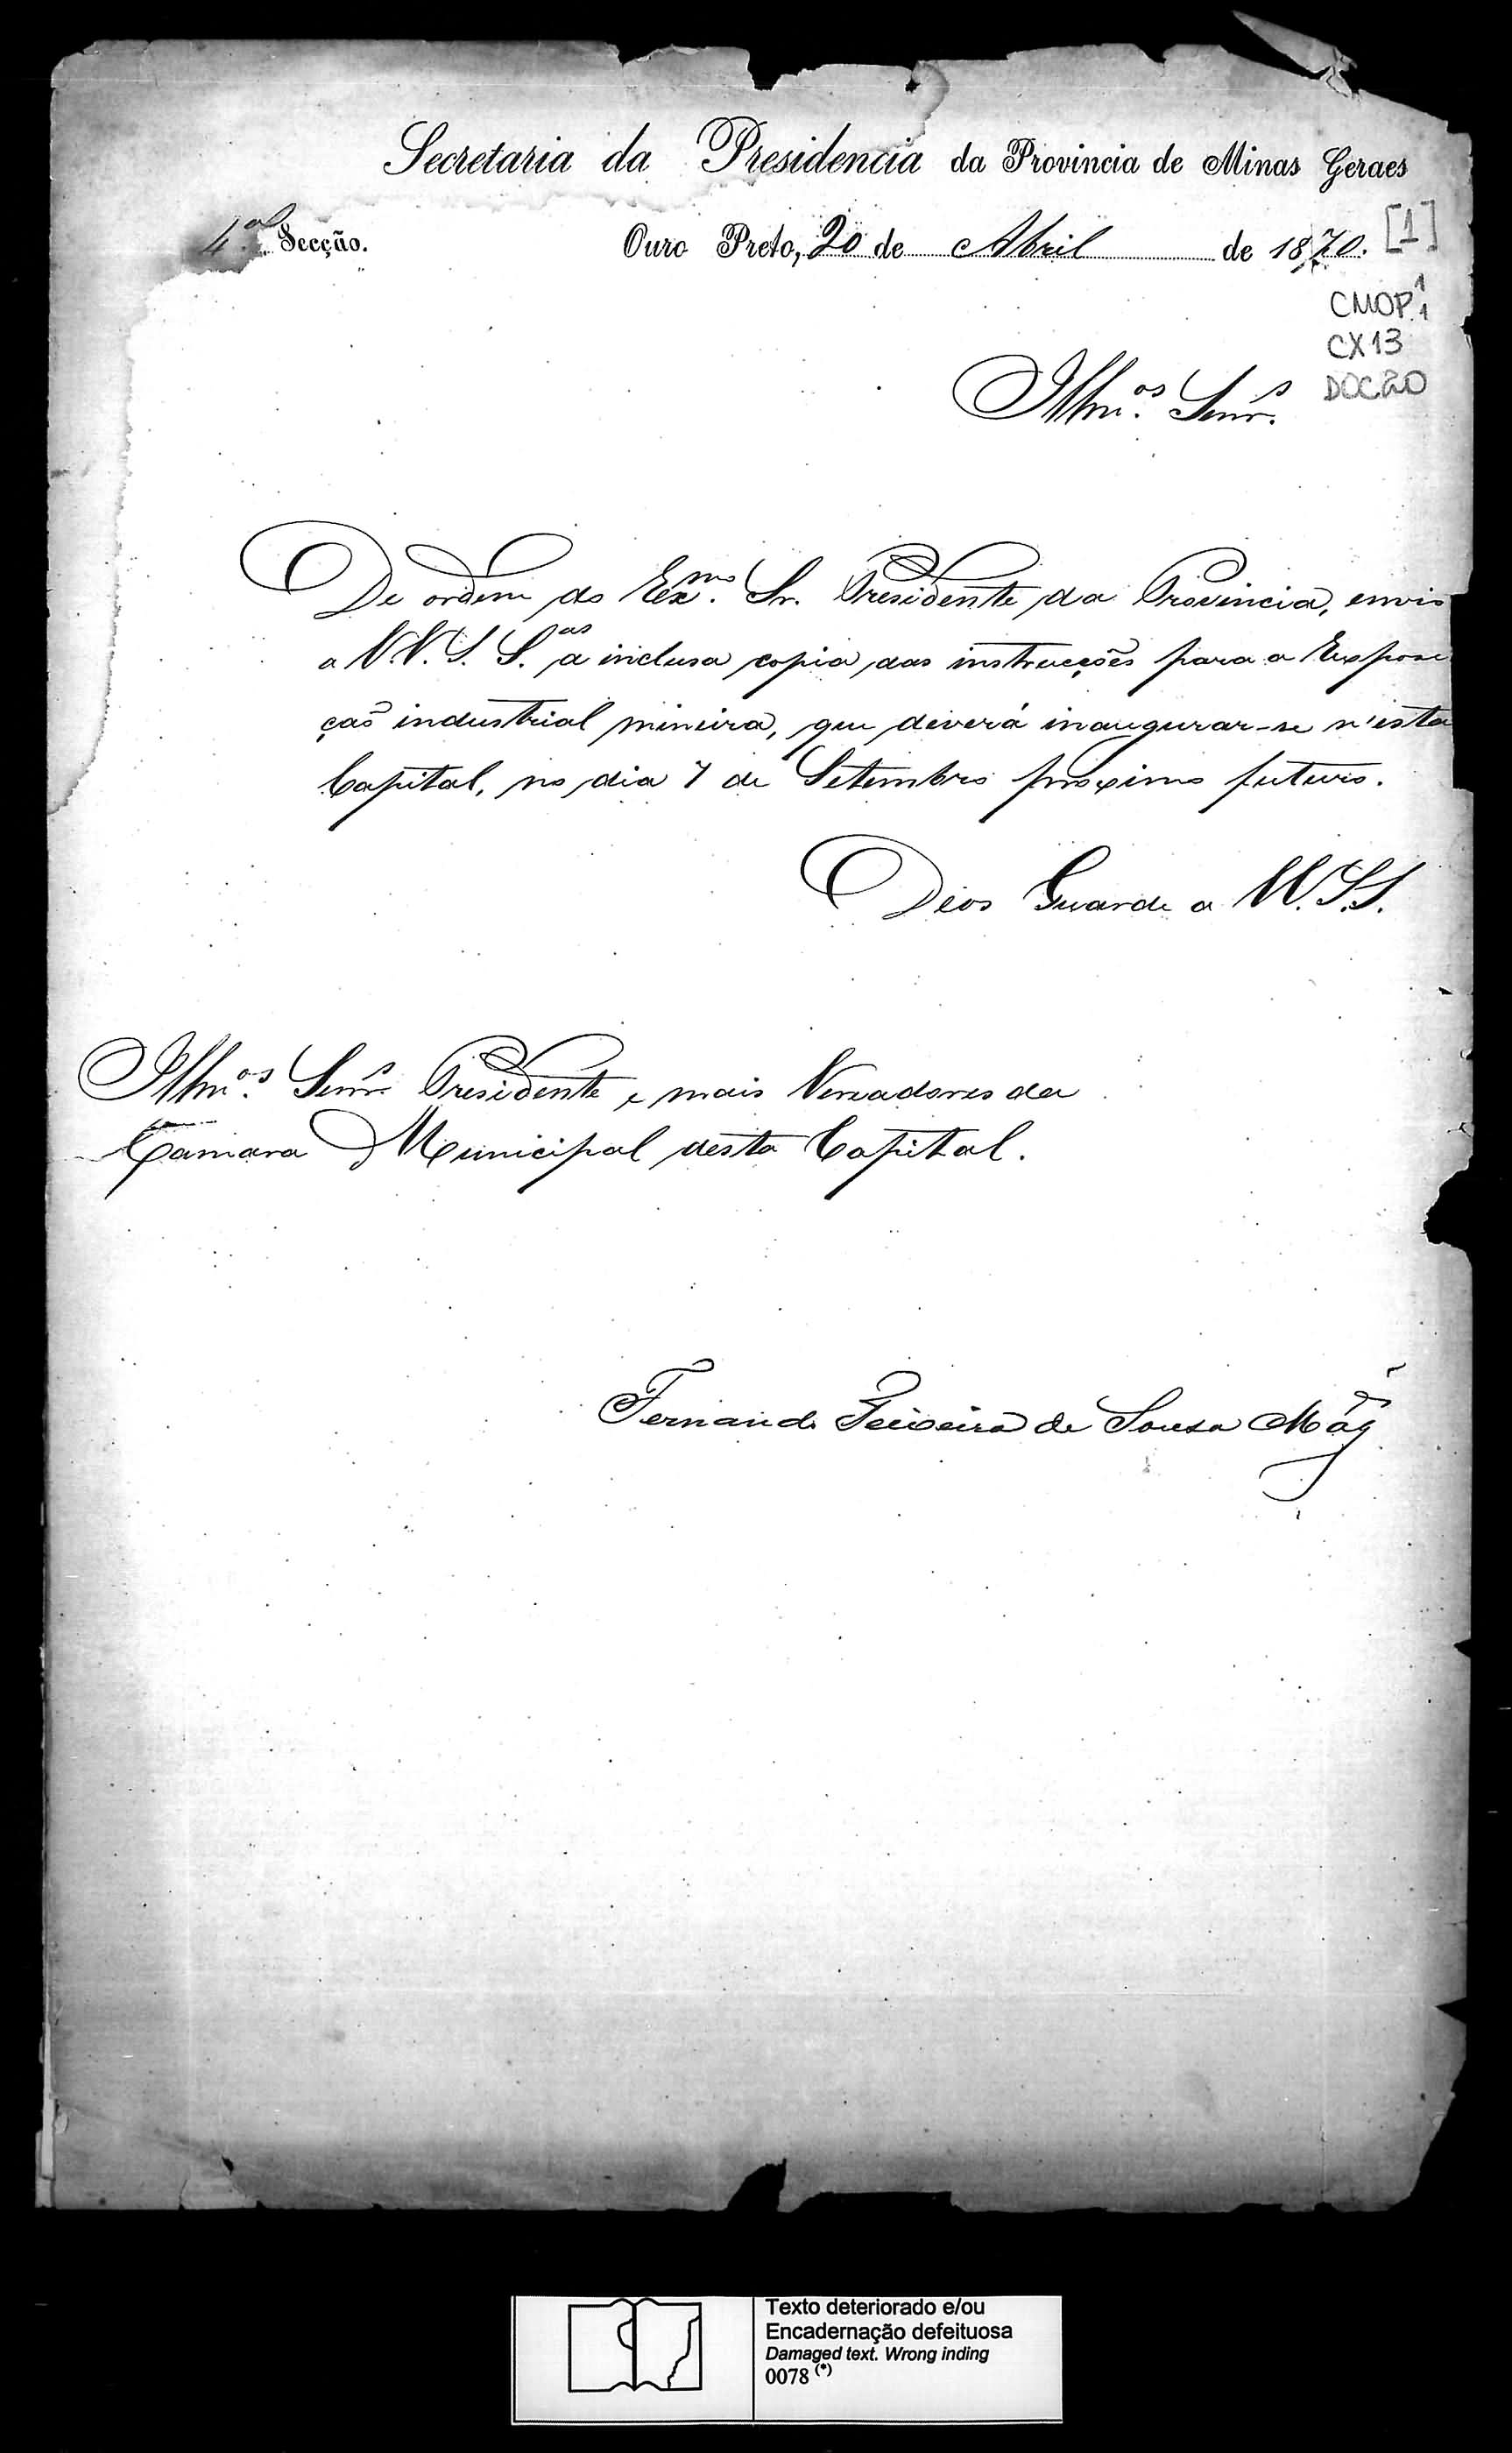 Secretaria da Presidencia da Provincia de Minas Geraes
4.ª Secção. Ouro Preto, 20 de Abril de 1870. [1]
CMOP 1/1
CX 13
DOC 20
Illm.ºs Senr.s
De ordem do Exm.º Sr. Presidente da Provincia, envio
a V.V. S. S.as a inclusa copia das instrucções para a Exposi
ção industrial mineira, que deverá inaugurar-se n'esta
Capital, no dia 7 de Setembro proximo futuro.
Deos Guarde a VV. SS.
Illm.ºs Senr.s Presidente e mais Vereadores da
Camara Municipal desta Capital.
Fernando Teixeira de Sousa Mag
Texto deteriorado e/ou
Encadernação defeituosa
Damaged text. Wrong inding
0078 (*)